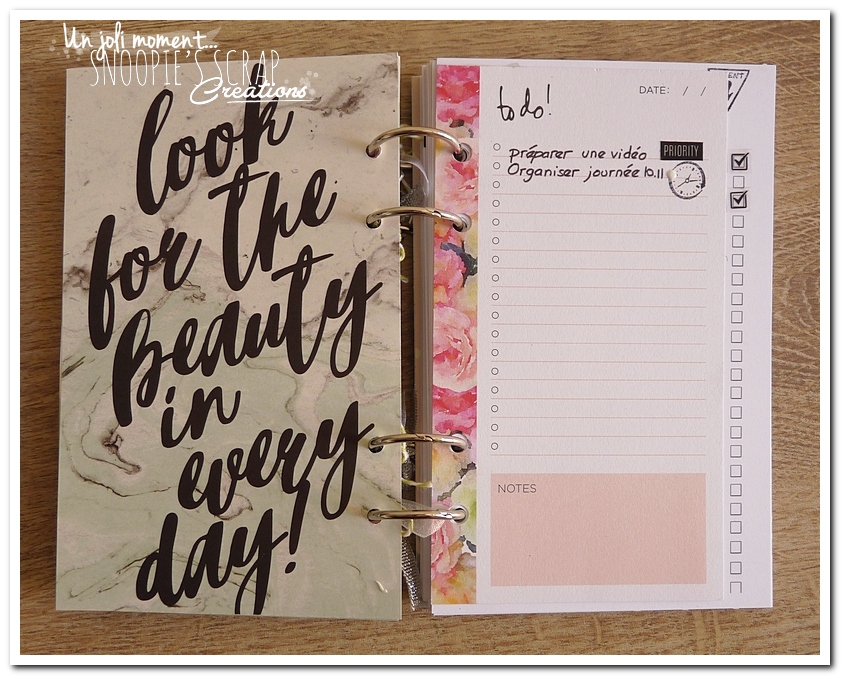 Un joli moment...
SNOOPIE'S SCRAP
Creations
look
for the
Beauty
in
every
day!
to do!
DATE: / /
préparer une vidéo
PRIORITY
Organiser journée 10.11
NOTES